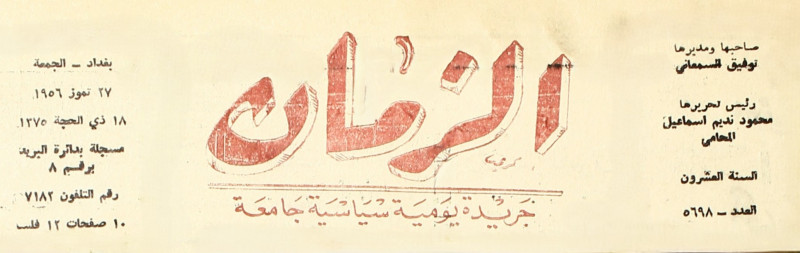 صاحبها ومديرها
توفيق السمعاني
رئيس تحريرها
محمود نديم اسماعيل
المحامي
السنة العشرون
العدد – ٥٦٩٨
الزمان
جريدة يومية سياسية جامعة
بغداد – الجمعة
٢٧ تموز ١٩٥٦
١٨ ذي الحجة ١٣٧٥
مسجلة بدائرة البريد
برقم ٨
رقم التلفون ٧١٨٢
١٠ صفحات ١٢ فلس